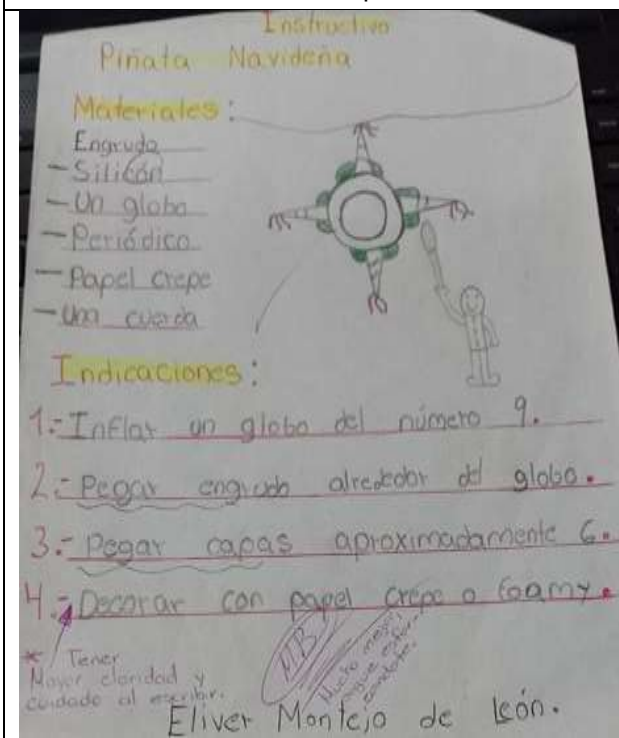 Instructivo
Piñata Navideña
Materiales:
Engrudo
- Silicón
- Un globo
- Periódico
- Papel crepe
- Una cuerda
Indicaciones:
1.- Inflar un globo del número 9.
2.- Pegar engrudo alrededor del globo.
3.- Pegar capas aproximadamente 6.
4.- Decorar con papel crepe o foamy.
* Tener
Mayor claridad y
cuidado al escribir.
MB
Mucho mejor,
sigue esfor-
zandote.
Eliver Montejo de león.